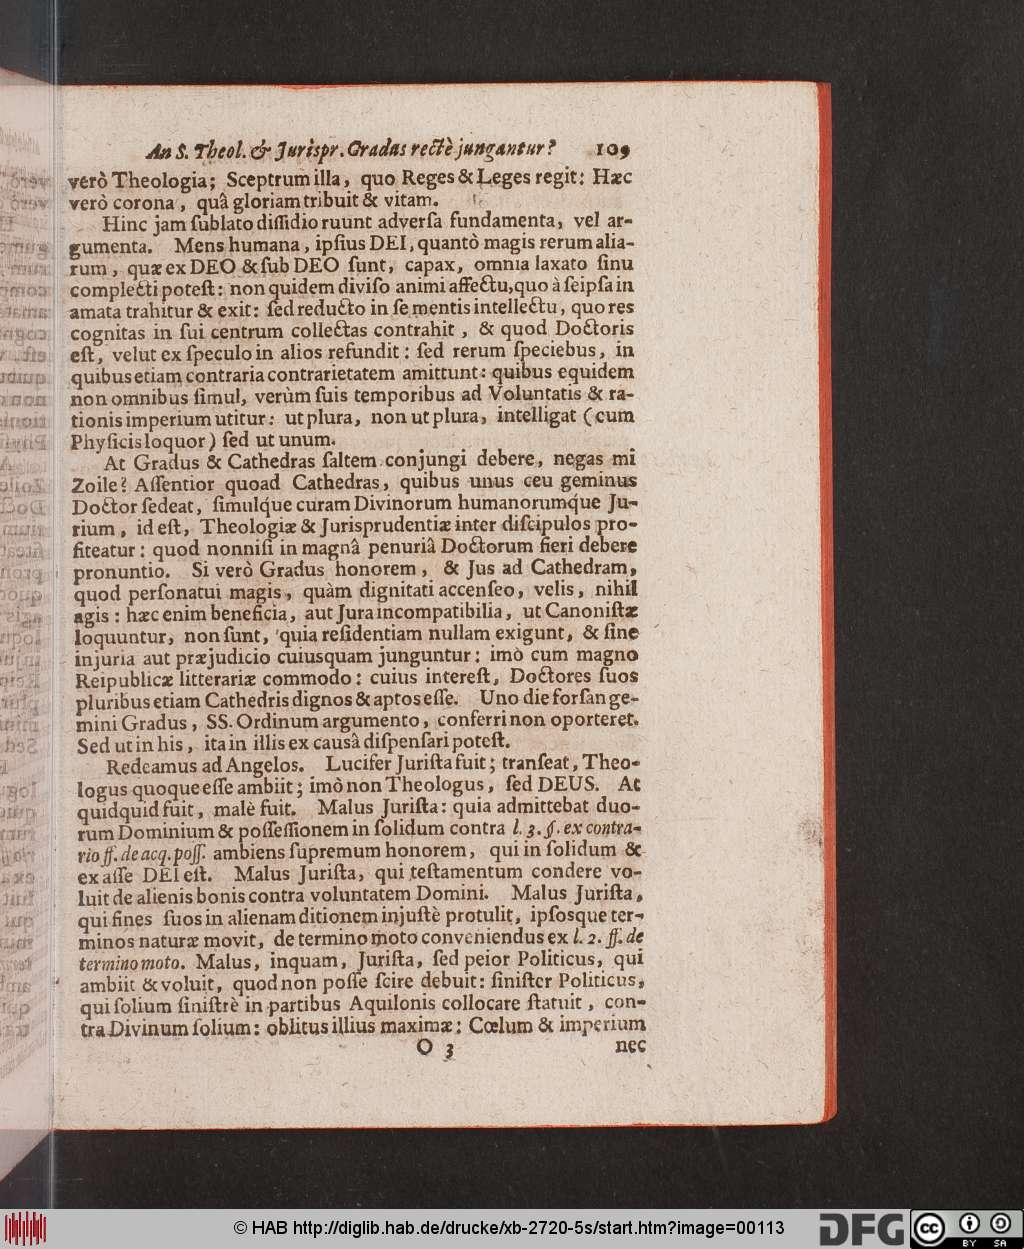 An S. Theol. & Jurispr. Gradus rectè jungantur? 109
verò Theologia; Sceptrum illa, quo Reges & Leges regit: Hæc
verò corona, quâ gloriam tribuit & vitam.
Hinc jam ſublato diſſidio ruunt adverſa fundamenta, vel ar-
gumenta. Mens humana, ipſius DEI, quantò magis rerum alia-
rum, quæ ex DEO & ſub DEO ſunt, capax, omnia laxato ſinu
complecti poteſt: non quidem diviſo animi affectu, quo à ſeipſa in
amata trahitur & exit: ſed reducto in ſe mentis intellectu, quo res
cognitas in ſui centrum collectas contrahit, & quod Doctoris
eſt, velut ex ſpeculo in alios refundit: ſed rerum ſpeciebus, in
quibus etiam contraria contrarietatem amittunt: quibus equidem
non omnibus ſimul, verùm ſuis temporibus ad Voluntatis & ra-
tionis imperium utitur: ut plura, non ut plura, intelligat (cum
Phyſicis loquor) ſed ut unum.
At Gradus & Cathedras ſaltem conjungi debere, negas mi
Zoile? Aſſentior quoad Cathedras, quibus unus ceu geminus
Doctor ſedeat, ſimulq́ue curam Divinorum humanorumq́ue Ju-
rium, id eſt, Theologiæ & Jurisprudentiæ inter diſcipulos pro-
fiteatur: quod nonniſi in magnâ penuriâ Doctorum fieri debere
pronuntio. Si verò Gradus honorem, & Jus ad Cathedram,
quod perſonatui magis, quàm dignitati accenſeo, velis, nihil
agis: hæc enim beneficia, aut Jura incompatibilia, ut Canoniſtæ
loquuntur, non ſunt, quia reſidentiam nullam exigunt, & ſine
injuria aut præjudicio cuiusquam junguntur: imò cum magno
Reipublicæ litterariæ commodo: cuius intereſt, Doctores ſuos
pluribus etiam Cathedris dignos & aptos eſſe. Uno die forſan ge-
mini Gradus, SS. Ordinum argumento, conferri non oporteret.
Sed ut in his, ita in illis ex causâ diſpenſari poteſt.
Redeamus ad Angelos. Lucifer Juriſta fuit; tranſeat, Theo-
logus quoque eſſe ambiit; imò non Theologus, ſed DEUS. At
quidquid fuit, malè fuit. Malus Juriſta: quia admittebat duo-
rum Dominium & poſſeſſionem in ſolidum contra l. 3. §. ex contra-
rio ff. de acq. poſſ. ambiens ſupremum honorem, qui in ſolidum &
ex aſſe DEI eſt. Malus Juriſta, qui teſtamentum condere vo-
luit de alienis bonis contra voluntatem Domini. Malus Juriſta,
qui fines ſuos in alienam ditionem injuſtè protulit, ipſosque ter-
minos naturæ movit, de termino moto conveniendus ex l. 2. ff. de
termino moto. Malus, inquam, Juriſta, ſed peior Politicus, qui
ambiit & voluit, quod non poſſe ſcire debuit: ſiniſter Politicus,
qui ſolium ſiniſtrè in partibus Aquilonis collocare ſtatuit, con-
tra Divinum ſolium: oblitus illius maximæ: Cœlum & imperium
O 3 nec
© HAB http://diglib.hab.de/drucke/xb-2720-5s/start.htm?image=00113
DFG
cc BY SA